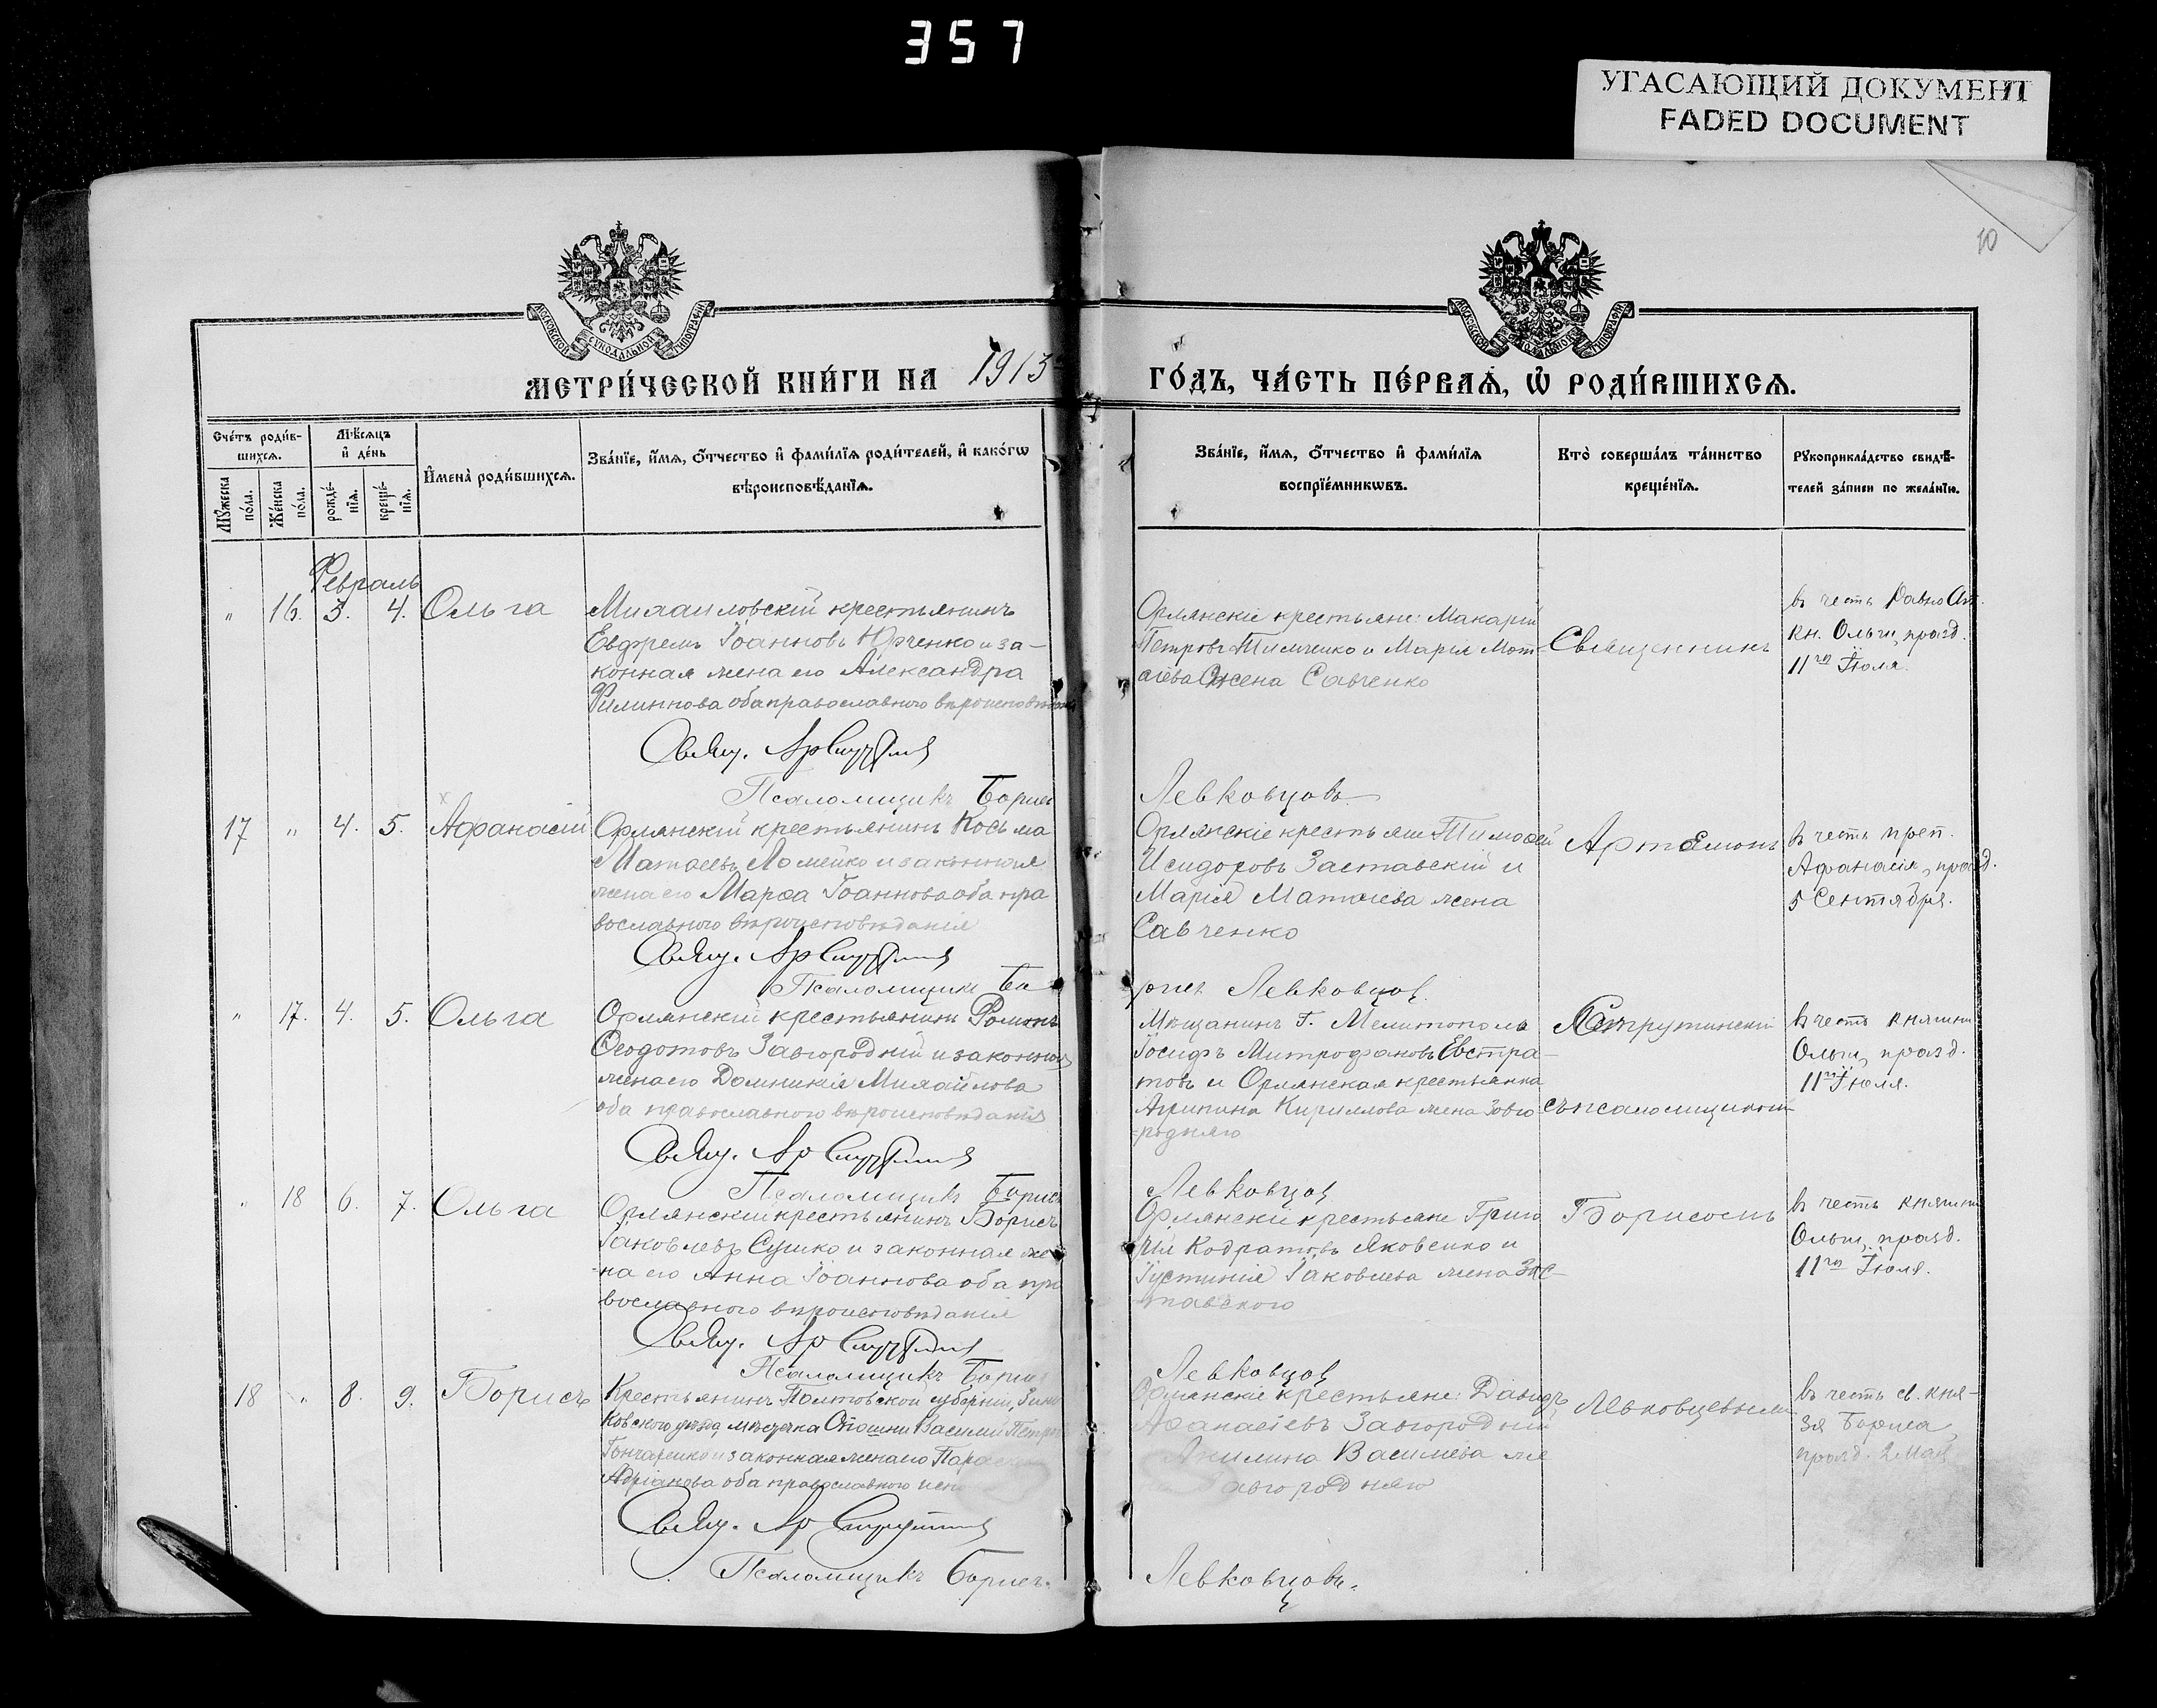 357
УГАСАЮЩИЙ ДОКУМЕНТ
FADED DOCUMENT
10
МОСКОВСКОЙ СѴНОДАЛЬНОЙ ТИПОГРАФІИ
МОСКОВСКОЙ СѴНОДАЛЬНОЙ ТИПОГРАФІИ
МЕТРИ́ЧЕСКОЙ КНИ́ГИ НА 1913
ГО́ДЪ, ЧА́СТЬ ПЕ́РВАѦ, Ѡ҆ РОДИ́ВШИХСѦ.
Сче́тъ роди́в-
шихсѧ.
Мꙋ́жеска
по́ла.
Же́нска
по́ла.
Мѣ́сѧцъ
и҆ де́нь
рожде́-
нїѧ.
креще́-
нїѧ.
И҆мена̀ роди́вшихсѧ.
Зва́нїе, и҆́мѧ, ѻ҆́тчество и҆ фами́лїѧ роди́телей, и҆ како́гѡ
вѣроисповѣ́данїѧ.
Зва́нїе, и҆́мѧ, ѻ҆́тчество и҆ фами́лїѧ
воспрїе́мникѡвъ.
Кто̀ соверша́лъ та́инство
креще́нїѧ.
Рꙋкоприкла́дство свидѣ́-
телей за́писи по жела́нїю.
Февраль
" 16. 3. 4. Ольга
Михаиловскій крестьянинъ
Евфремъ Іоанновъ Юрченко и за-
конная жена его Александра
Филиппова оба православного вѣроисповѣданія
Свящ. Ар Струтинскій
Псаломщикъ Борисъ
Орлянскіе крестьяне: Макарій
Петровъ Тимченко и Марія Мат-
ѳіева жена Савченко
Левковцовъ
Священникъ
въ честь Равно Ап.
кн. Ольги, празд.
11го Іюля.
17 " 4. 5. Афанасій
Орлянскій крестьянинъ Косьма
Матѳеевъ Ломейко и законная
жена его Марѳа Іоаннова оба пра
вославного вѣроисповѣданія
Свящ. Ар Струтинскій
Псаломщикъ Бо
Орлянскіе крестьяне Тимоѳей
Исидоровъ Заставскій и
Марія Матѳіева жена
Савченко
рисъ Левковцов
Артемонъ
въ честь преп.
Афанасія, празд.
5 Сентября.
" 17. 4. 5. Ольга
Орлянскій крестьянинъ Романъ
Ѳеодотовъ Завгородній и законная
жена его Домникія Михайлова
оба православного вѣроисповѣданія
Свящ. Ар Струтинскій
Псаломщикъ Борисъ
Мѣщанинъ г. Мелитополя
Іосифъ Митрофановъ Евстра-
товъ и Орлянская крестьянка
Агрипина Кириллова жена Завго
=родняго
Левковцов
Струтинскій
съ псаломщикомъ
въ честь княгини
Ольги, празд.
11го Іюля.
" 18 6. 7. Ольга
Орлянскій крестьянинъ Борисъ
Іаковлевъ Сушко и законная же
-на его Анна Іоаннова оба пра
вославного вѣроисповѣданія
Свящ. Ар Струтинскій
Псаломщикъ Борисъ
Орлянскіе крестьяне Григо
рій Кодратовъ Яковенко и
Іустинія Іаковлева жена Зас-
тавского
Левковцов
Борисомъ
въ честь княгини
Ольги, празд.
11го Іюля.
18 " 8. 9. Борисъ
Крестьянинъ Полтовской губерніи, Зинь
ковского уѣзда, мѣстечка Опошни Василій Петров
Гончаренко и законная жена его Параскева
Адріанова оба православного
Свящ. Ар Струтинскій
Псаломщикъ Борисъ.
Орлянскіе крестьяне: Давидъ
Аѳанасіевъ Завгородній
Акилина Василіева же
Завгородняго
Левковцовъ.
Левковцевымъ
въ честь св. кня-
зя Бориса,
празд. 2 Мая